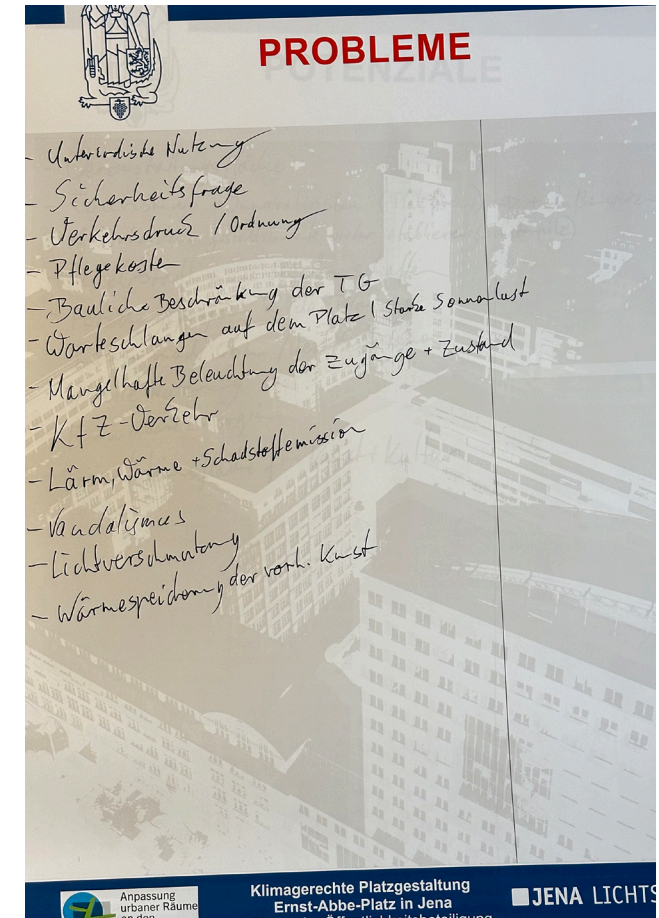 PROBLEME
POTENZIALE
- Unterirdische Nutzung
- Sicherheitsfrage
- Verkehrsdruck / Ordnung
- Pflegekosten
- Bauliche Beschränkung der TG
- Warteschlangen auf dem Platz / Starke Sonnenlast
- Mangelhafte Beleuchtung der Zugänge + Zustand
- KfZ-Verkehr
- Lärm, Wärme + Schadstoffemission
- Vandalismus
- Lichtverschmutzung
- Wärmespeicherung der vorh. Kunst
Anpassung
urbaner Räume
an den
Klimagerechte Platzgestaltung
Ernst-Abbe-Platz in Jena
Öffentlichkeitsbeteiligung
JENA LICHTS